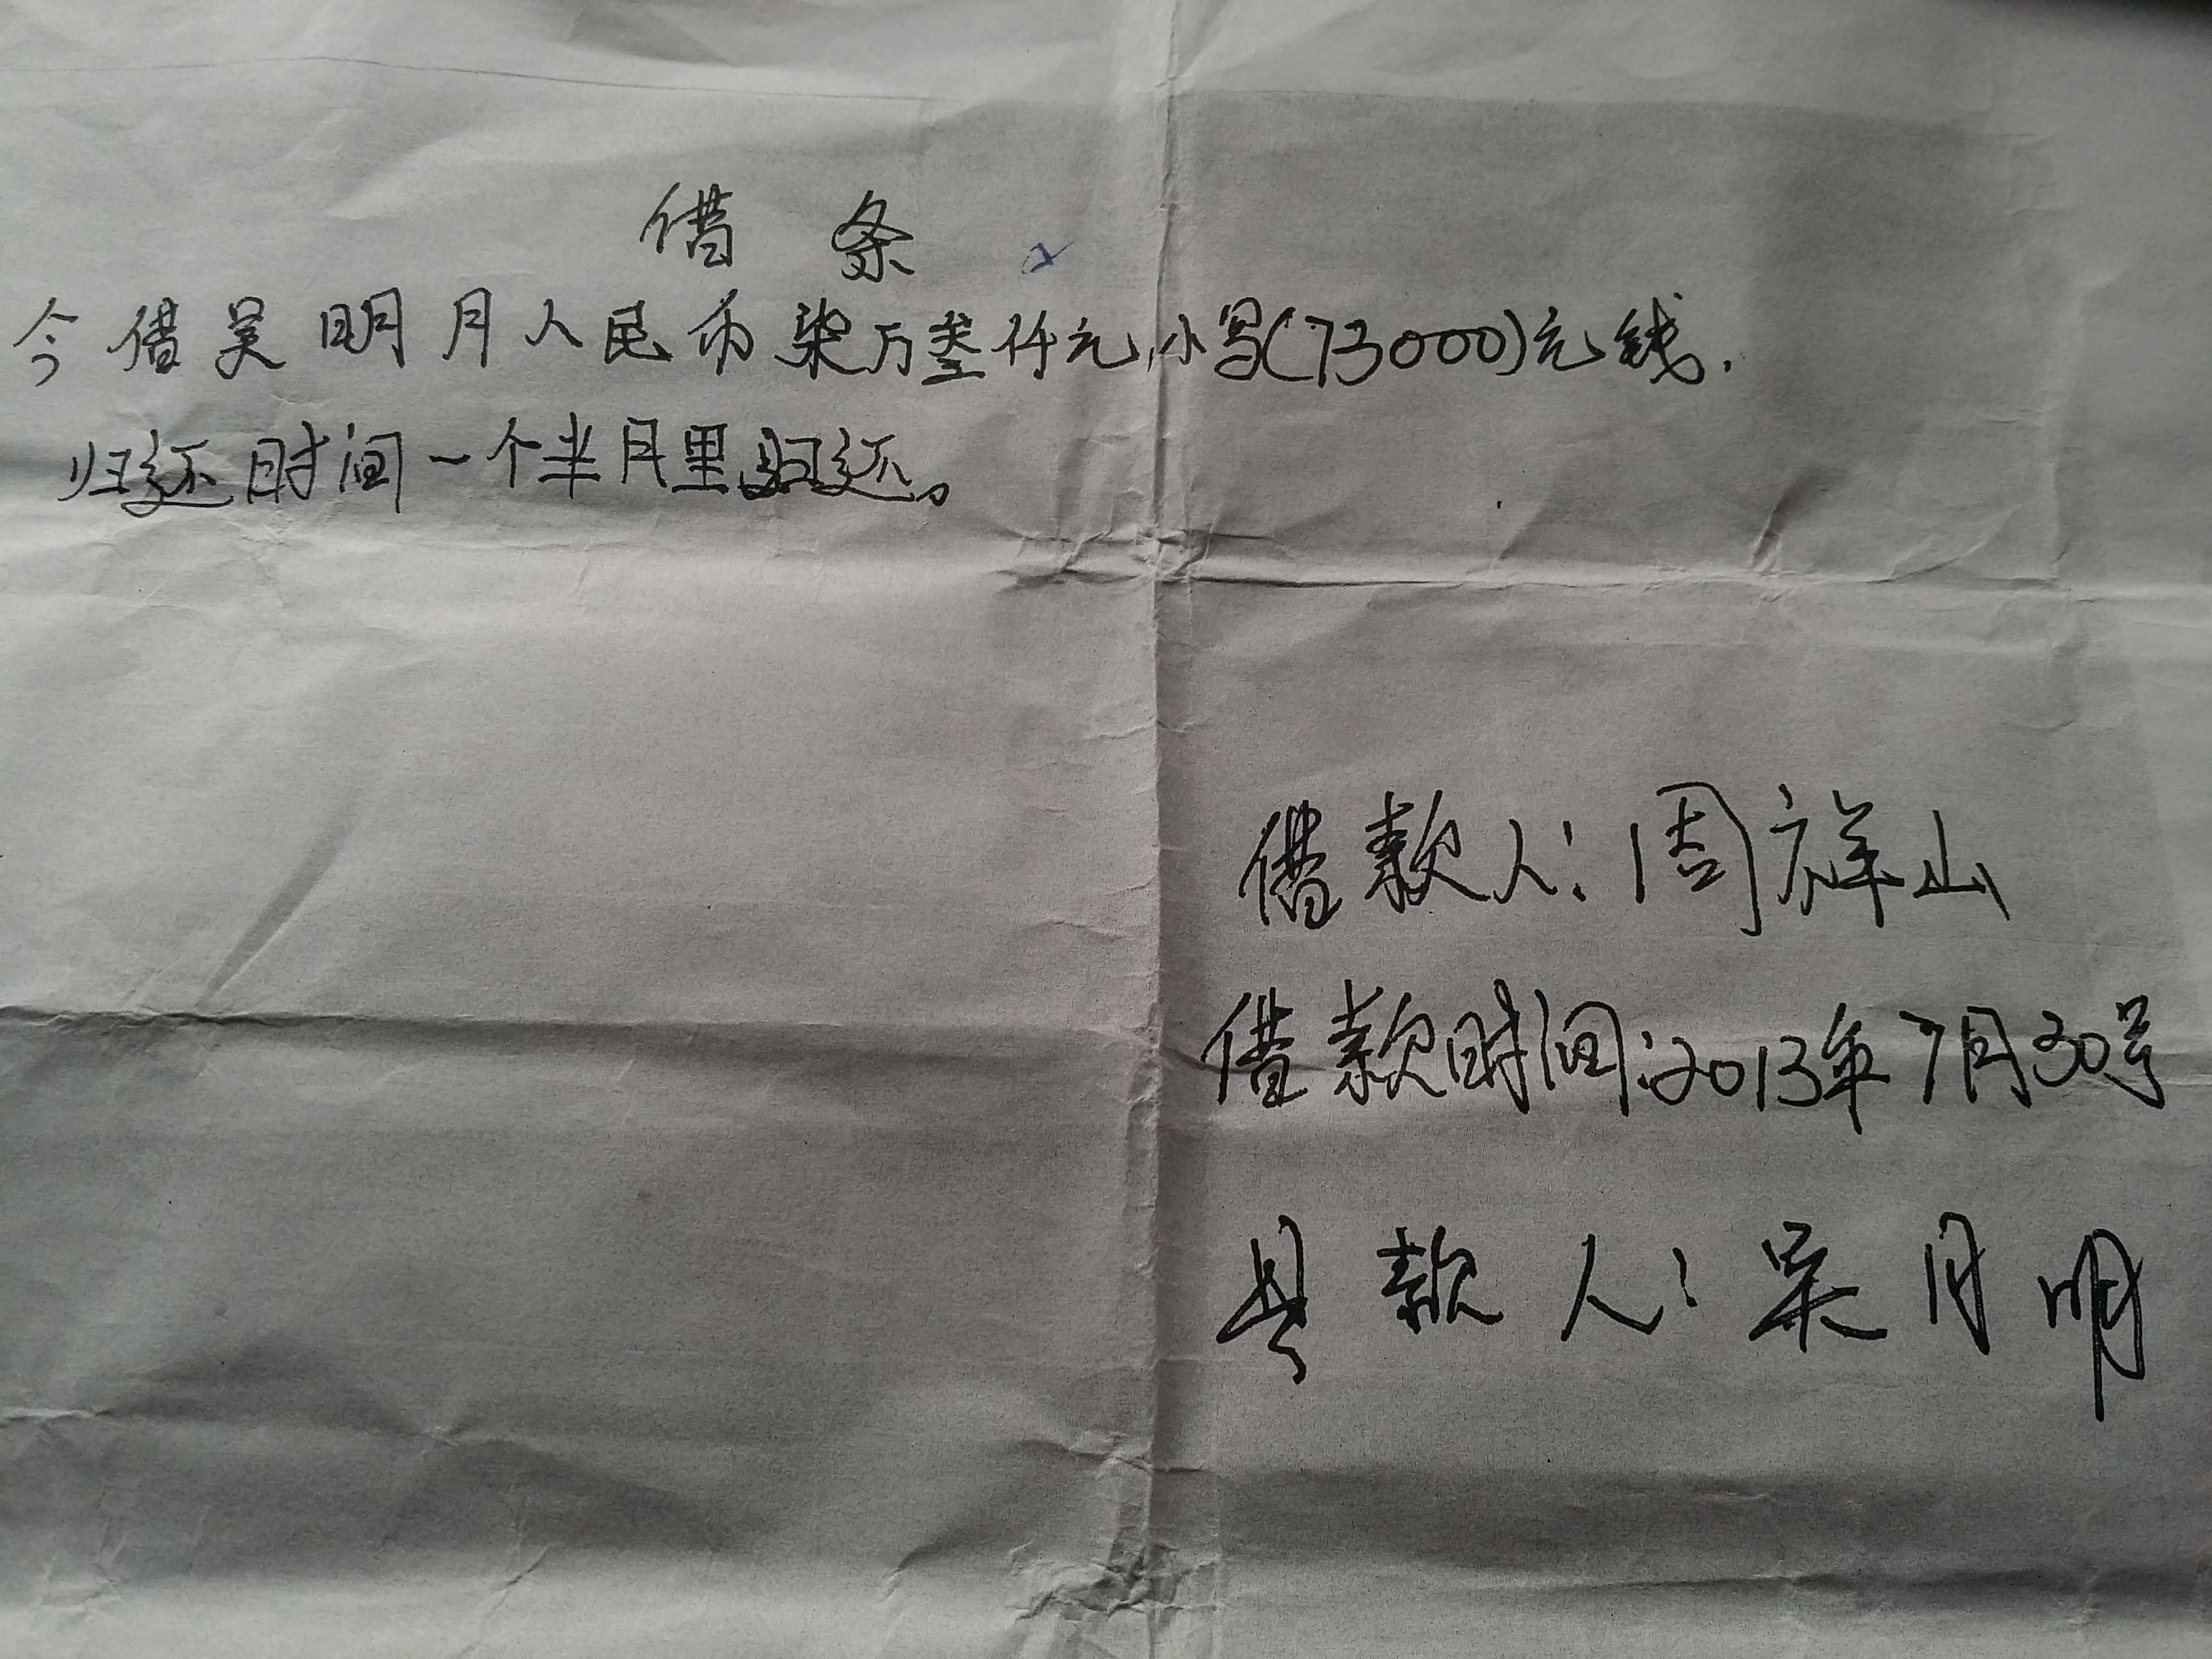 借 条
今借吴明月人民币柒万叁仟元,小写(73000)元钱.
归还时间一个半月里归还。
借款人:周祥山
借款时间:2013年7月30号
款人:吴月明